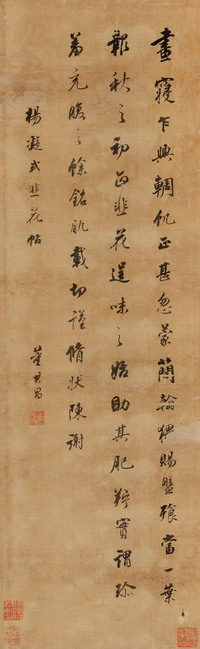 晝寢乍興輖飢正甚忽蒙簡翰猥賜盤飧當一葉
報秋之初乃韭花逞味之始助其肥羜實謂珍
羞充腹之餘銘肌載切謹脩狀陳謝
楊凝式韭花帖
董其昌